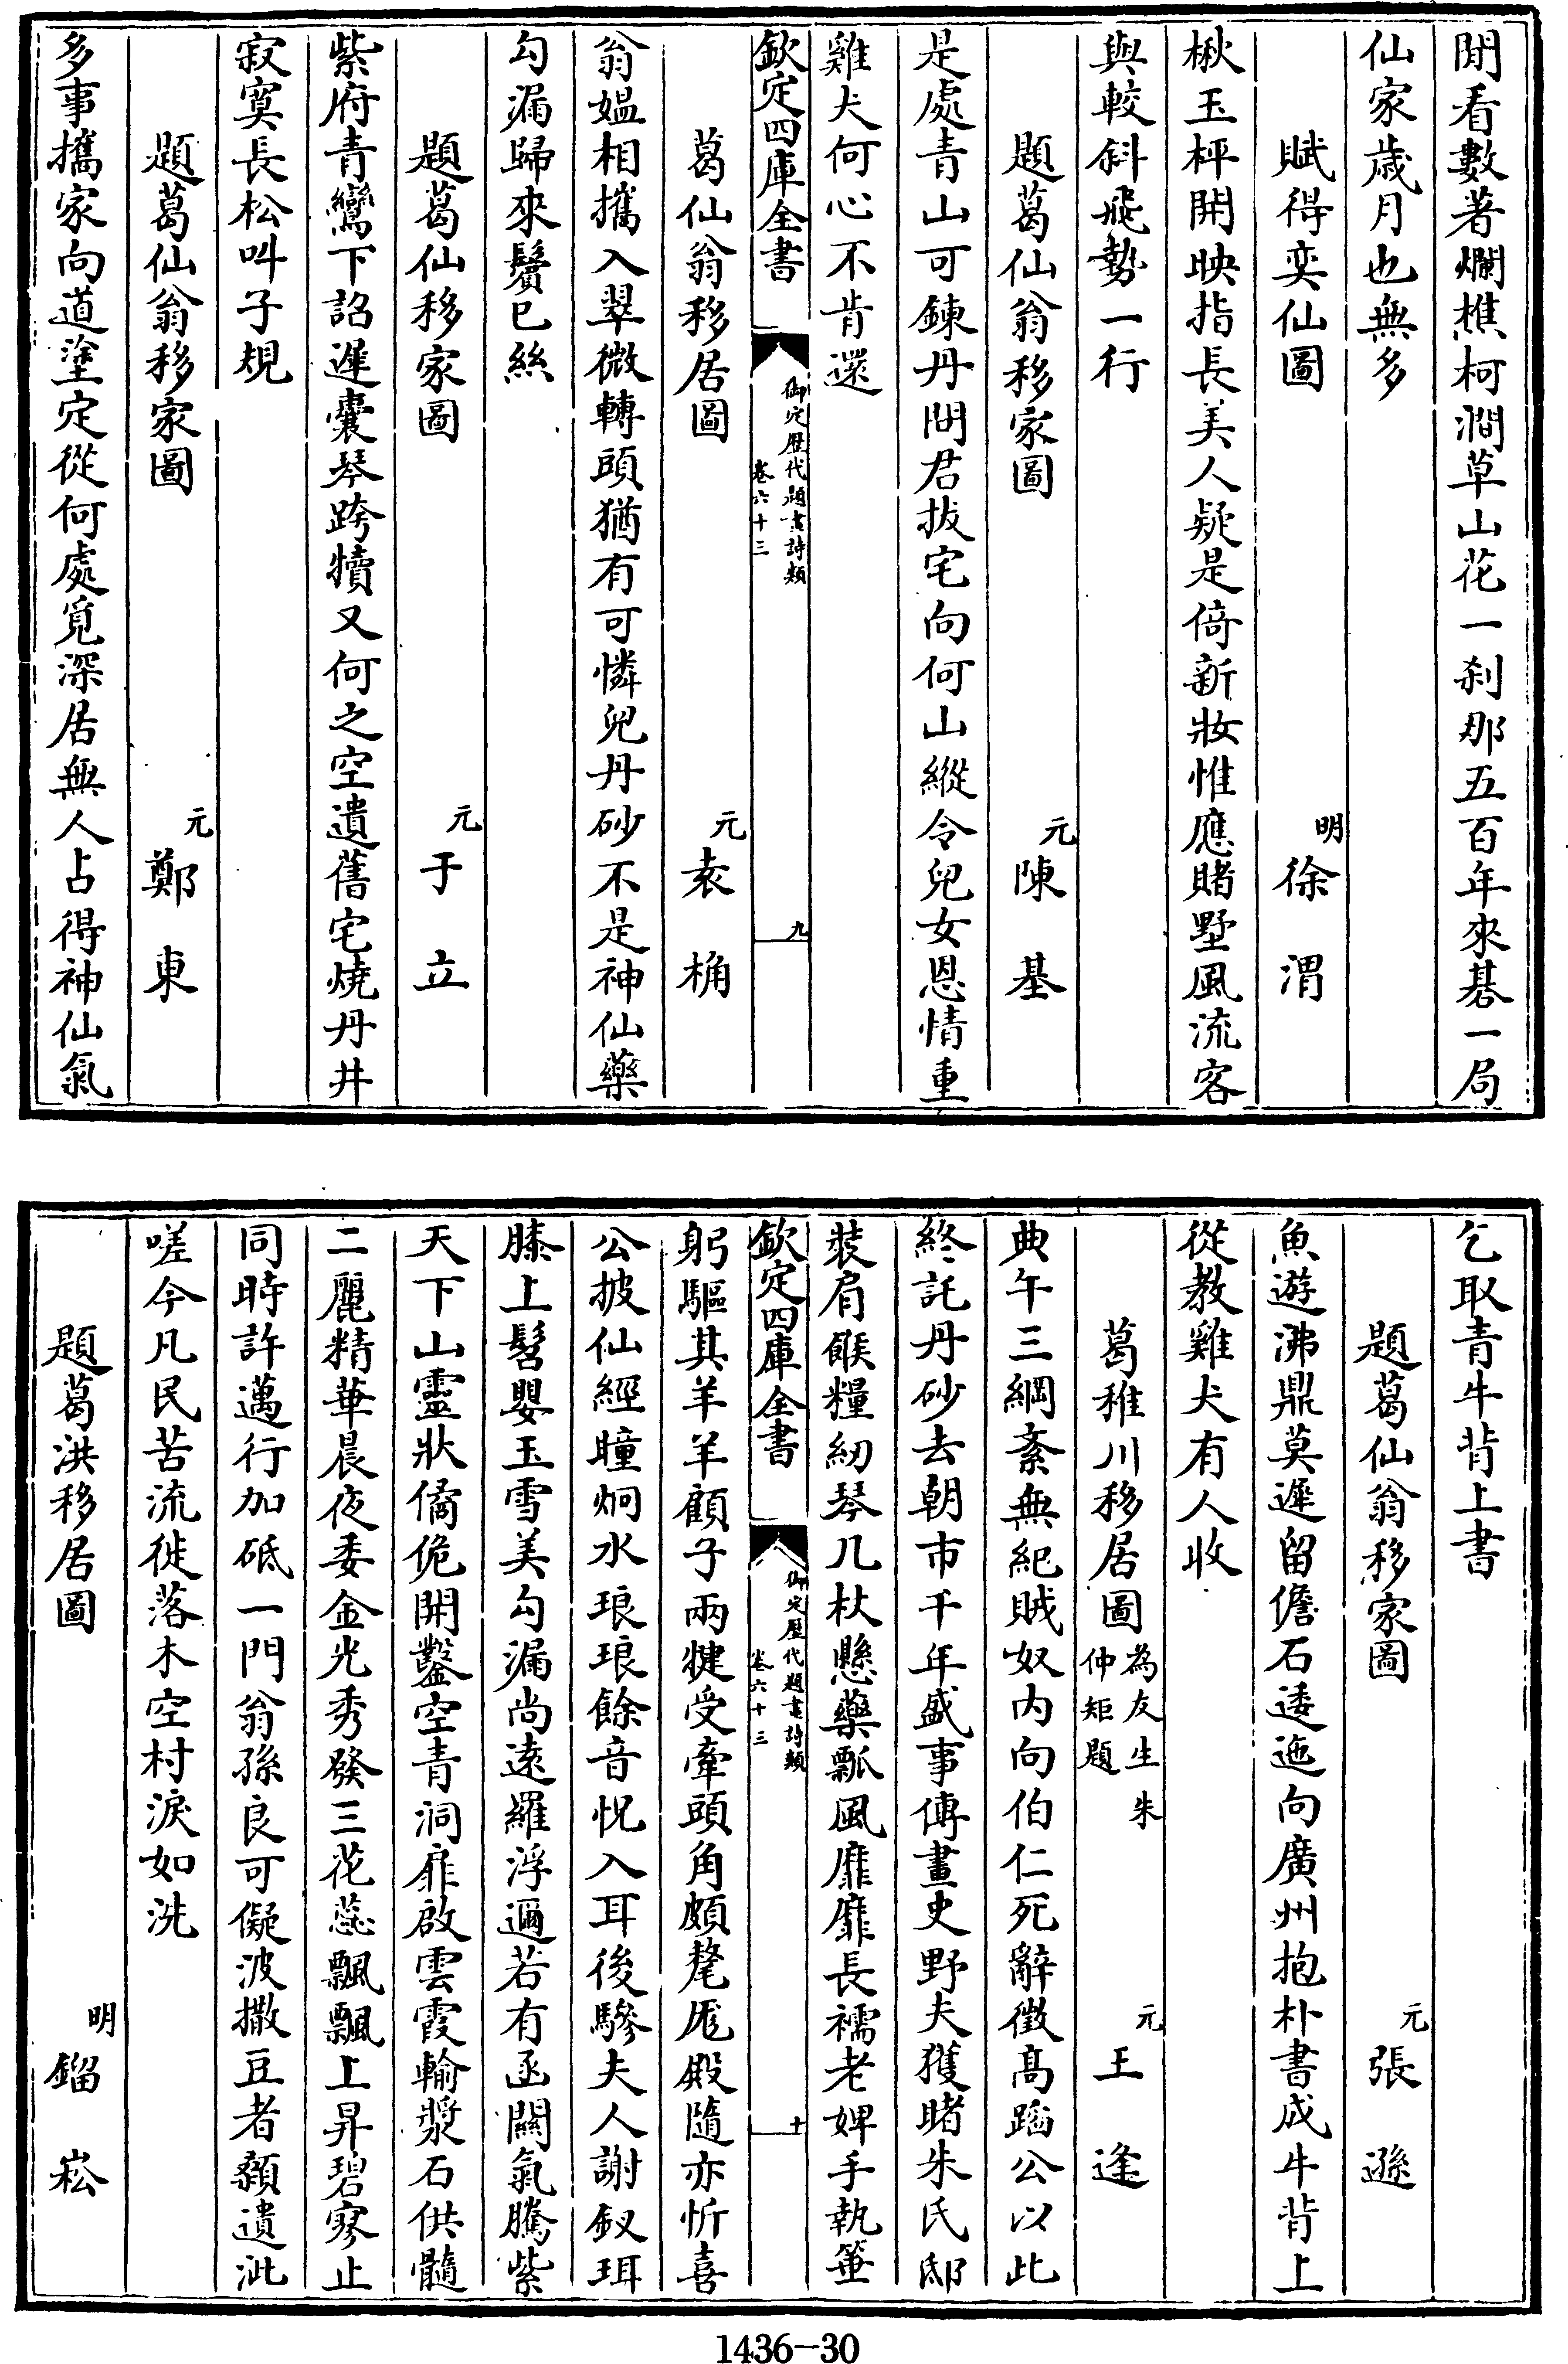 閒看數著爛樵柯澗草山花一刹那五百年來碁一局
仙家歳月也無多
賦得奕仙圖
明徐渭
楸玉枰開映指長美人疑是倚新妝惟應賭墅風流客
與較斜飛勢一行
題葛仙翁移家圖
元陳基
是處青山可鍊丹問君拔宅向何山縱令兒女恩情重
雞犬何心不肯還
欽定四庫全書
御定歴代題畫詩類
卷六十三
九
葛仙翁移居圖
元袁桷
翁媼相攜入翠微轉頭猶有可憐兒丹砂不是神仙藥
勾漏歸來鬢已絲
題葛仙移家圖
元于立
紫府青鸞下詔遲囊琴跨犢又何之空遺舊宅燒丹井
寂寞長松叫子規
題葛仙翁移家圖
元鄭東
多事攜家向道塗定從何處覓深居無人占得神仙氣
乞取青牛背上書
題葛仙翁移家圖
元張遜
魚遊沸鼎莫遲留儋石逶迤向廣州抱朴書成牛背上
從教雞犬有人收
葛稚川移居圖
為友生朱
仲矩題
元王逢
典午三綱紊無紀賊奴内向伯仁死辭徵髙蹈公以此
終託丹砂去朝市千年盛事傳畫史野夫獲睹朱氏邸
裝肩餱糧紉琴几杖懸藥瓢風靡靡長襦老婢手執箠
欽定四庫全書
御定歴代題畫詩類
卷六十三
十
躬驅其羊羊顧子兩犍受牽頭角頗髦尨殿隨亦忻喜
公披仙經瞳烱水琅琅餘音怳入耳後驂夫人謝釵珥
膝上髫嬰玉雪美勾漏尚遠羅浮邇若有函關氣騰紫
天下山靈狀僪佹開鑿空青洞扉啟雲霞輸漿石供髓
二麗精華晨夜委金光秀發三花蕊飄飄上昇碧寥止
同時許邁行加砥一門翁孫良可儗波撒豆者顙遺泚
嗟今凡民苦流徙落木空村淚如洗
題葛洪移居圖
明鎦崧
1436-30